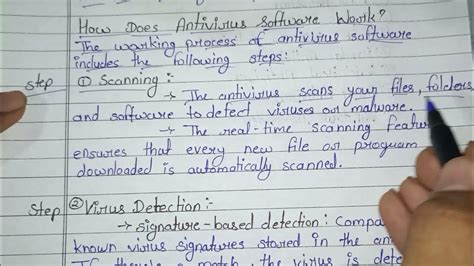 How Does Antivirus Software Work?
The working process of antivirus software
includes the following steps:
Step ① Scanning:
→ The antivirus scans your files, folders,
and software to detect viruses or malware.
→ The real-time scanning feature
ensures that every new file or program
downloaded is automatically scanned.
Step ② Virus Detection:-
→ signature-based detection: Compa
known virus signatures stored in the an
a match, the virus is dete